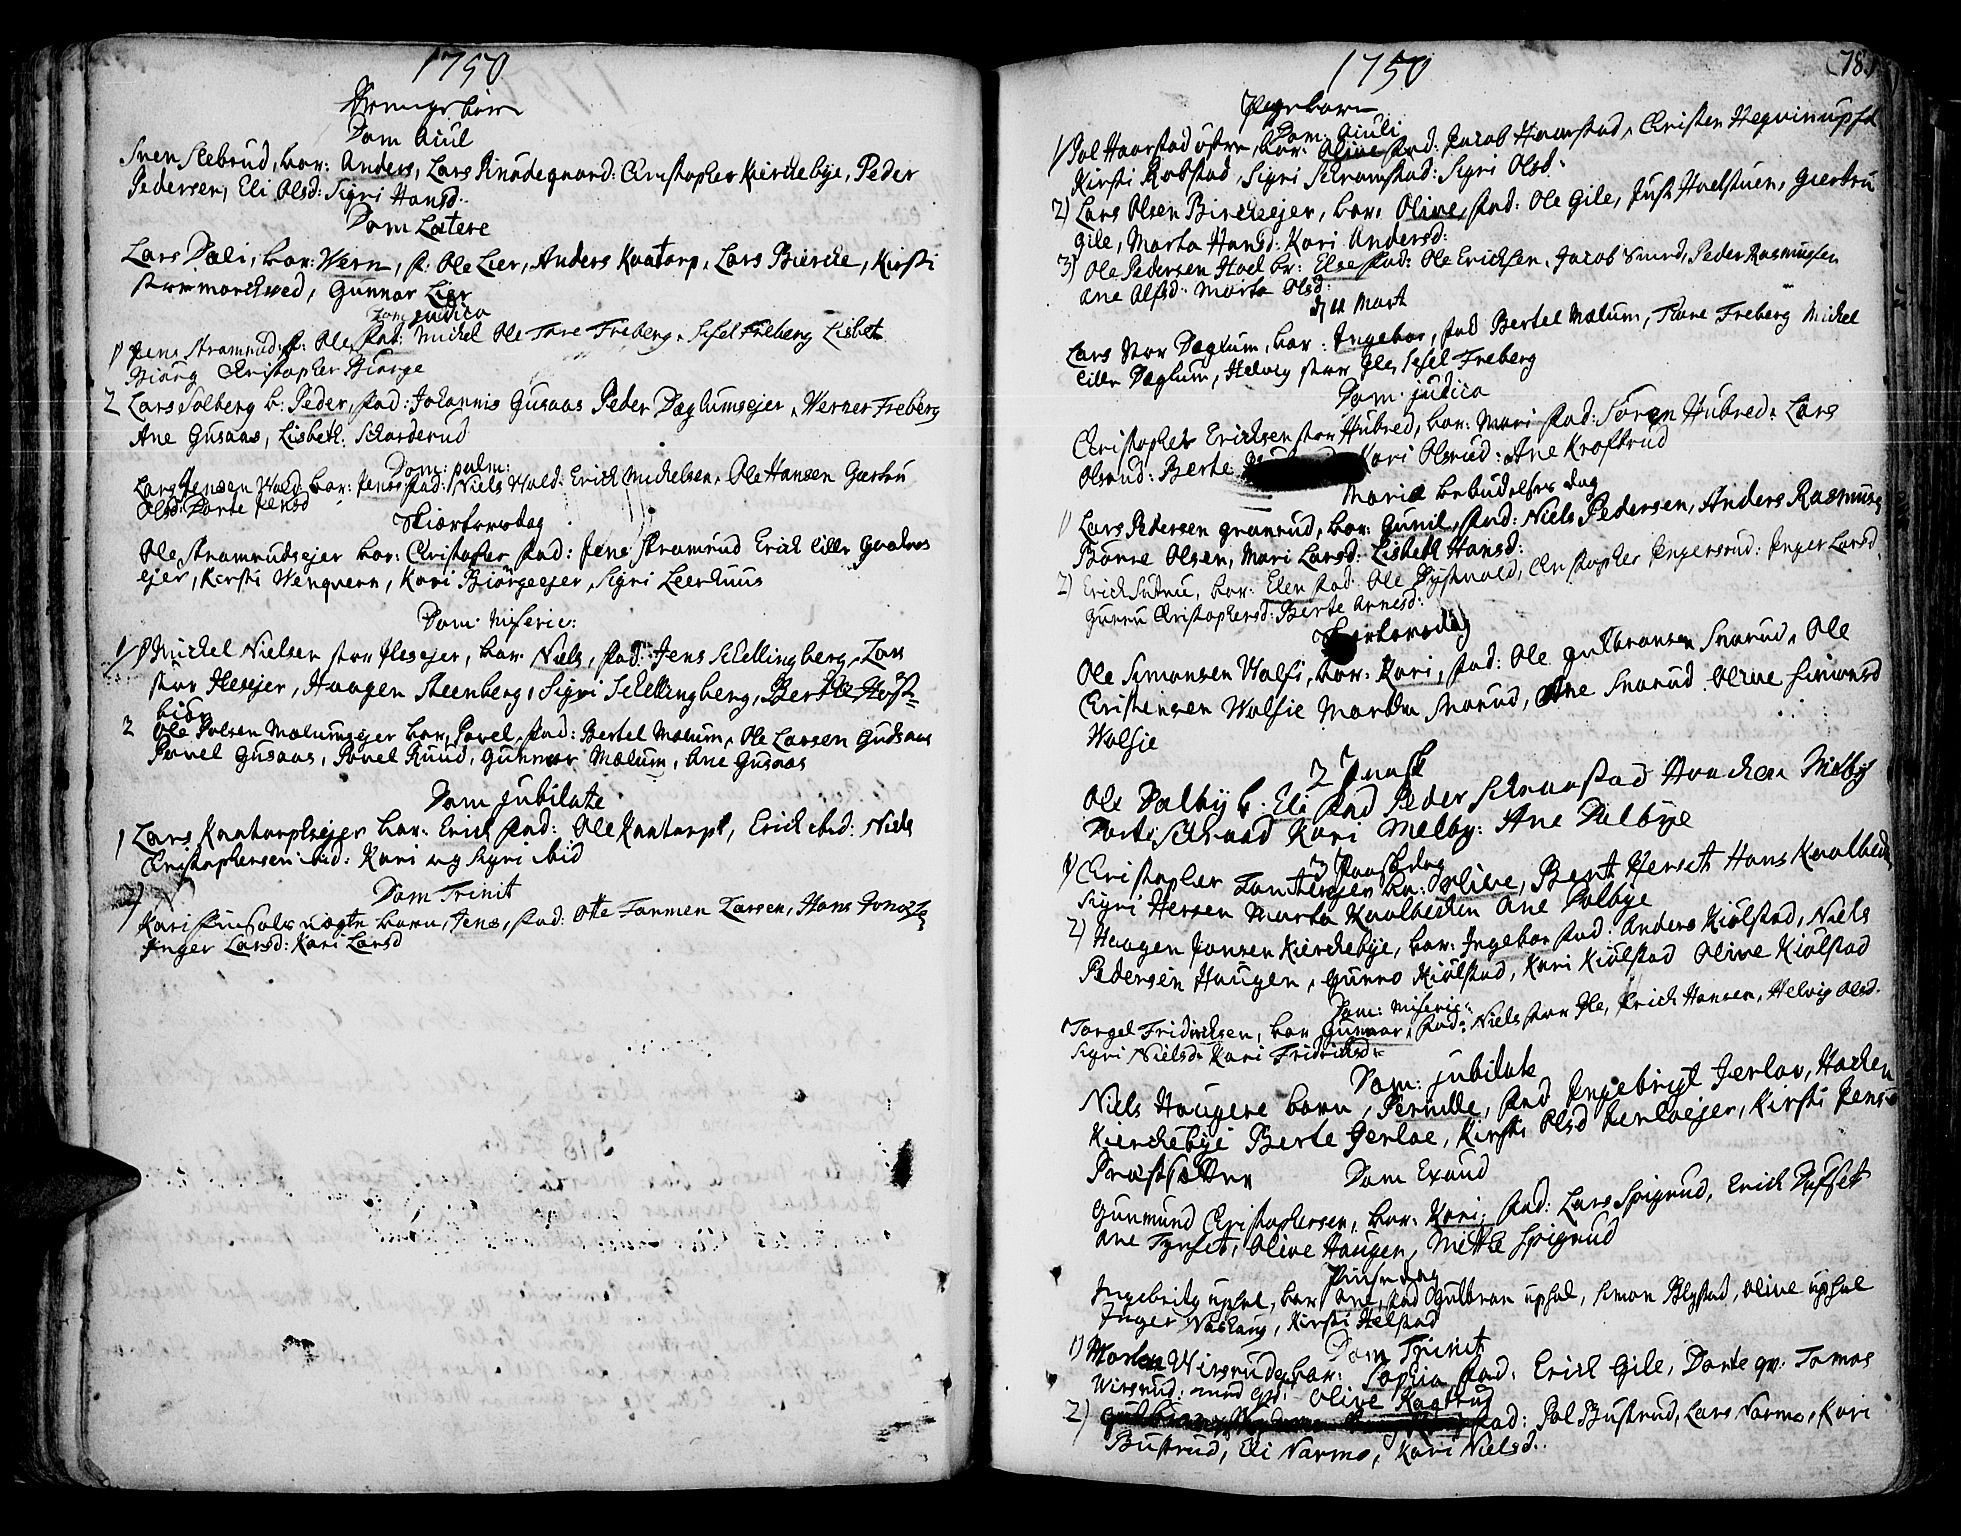 1750
Drengebörn
Dom Oculi
Sven Seebrud, bar: Anders, Lars Knudegaard: Christopher Kierckebye, Peder
Pedersen, Eli Olsd: Sigri Hansd:
Dom Lætere
Lars Dæli, bar: Wern, f: Ole Lier, Anders Kaatorp, Lars Biercke, Kirsti
Gunnor Lier
Dom Judica
1) Jens Stramrud: b: Ole, fad: Michel Ole Tore Freberg, Sisel Freberg Lisbet
Biörg Christopher Biørge
2 Lars Solberg b: Peder, fad: Johannis Gusaas Peder Dæglumsejer, Werner Freberg
Ane Gusaas, Lisbeth: Skarderud
Dom: palm:
Lars Jensen Wold bar: Jens fad: Niels Wold: Erick Michelsen, Ole Hansen Giertru
Olsd: Dorte Jensd
Skiærtorsdag
Ole Stramrudsejer bar: Christopher fad: Jens Stramrud Erick Lille
ejer, Kirsti Wengvern, Kari Biørgeejer, Sigri Leerhuus
Dom: Miseric:
1) Michel Nielsen stor Ilesejer, bar: Niels, fad: Jens Schellingberg, Lars
stor Ilesejer, Haagen Steenberg, Sigri Schellingberg, Berthe Høst-
biör
2 Ole Polsen Mælumsejer bar: Povel, fad: Bertel Mælum, Ole Larsen Gudsaas
Povel Gusaas, Povel Ruud, Gunnor Mælum, Ane Gusaas
Dom Jubilate
1 Lars Kaatorpsejer bar: Erick fad: Ole Kaatorp, Erick ibid: Niels
Christophersen ibid: Kari og Sigri ibid
Dom Trinit
Kari uægte barn, Jens, fad: Otte Farmen Larsen, Hans
Inger Larsd: Kari Larsd
1750
78.
Pigebørn
Dom: Oculi
1) Pol Haarstad bar: Olive fad: Jacob Haarstad, Christen
Kirsti Robstad, Sigri Schramstad: Sigri Olsd:
2) Lars Olsen Birckeejer, bar: Olive, fad: Ole Gile, Just Haelstuen, Giertru
Gile, Marta Hansd: Kari Andersd:
3) Ole Pedersen Hoel br: Else fad: Ole Ericksen, Jacob Smed, Peder Rasmussen
Ane Olsd: Marta Olsd:
Mart
Lars Stor Dæglum, bar: Ingebor, fad Bertel Mælum, Tore Freberg Michel
Lille Dæglum, Helvig stor Ile, Sisel Freberg
Dom: Judica
Christopher Ericksen stor Hubred, bar: Mari fad: Søren Hubred, Lars
Olsrud: Berte Kari Olsrud: Ane Kroftrud
Mariæ bebudelses dag
1) Lars Pedersen Granrud, bar: Gunil, fad: Niels Pedersen, Anders Rasmuss
Børre Olsen, Mari Larsd: Lisbeth Hansd:
2) Erick bar: Elen fad: Ole Christopher Ingersrud: Inger Larsd
Gurru Christophersd: Berte Arnesd:
Skiertorsdag
Ole Simonsen Wolsi, bar: Kari, fad: Ole Gulbransen Snarud, Ole
Christensen Wolsie Martha Snarud, Ane Snarud. Olive Simonsd
Wolsie
2 Paask
Ole Dalby b: Eli fad Peder Schraastad Haacken Melby
Dorti Kari Melby: Ane Dalbye
3 Paaskedag
1) Christopher bar: Olive, Bent Herset Hans Kaalbeck
Sigri Hersen Marta Kaalbecken Ane Dalbye
2) Haagen Jonsen Kierckebye, bar: Ingebor fad: Anders Kiølstad, Niels
Pedersen Haugen, Gunno Kiølstad, Kari Kiølstad Olive Kiølstad
Dom: Miseric:
Torgel Fridricksen, bar Gunnor, fad: Niels stor Ile, Erick Hansen, Helvig Olsd.
Sigri Nielsd: Kari Fridricksd:
Dom: Jubilate
Niels Haugene barn, Pernille, fad Ingebrigt Jerlov, Hacken
Kierckebye Berte Gerloe, Kirsti Olsd Kirsti Jens
Dom Exaud
Gunmund Christophersen, bar: Kari, fad: Lars Spigrud, Erick
Ane Tynset, Olive Haugen, Mette Spigrud
Pinsedag
Ingebrigt uphol, bar Ane, fad Gulbran uphol, Simon Blystad, Olive uphol
Inger Kirsti Helstad
Dom Trinit
1) Morten Wirsrud, bar: Sophia fad: Erick Gile, Dorte qv: Tomas
Wirsrud: Olive Kaatrud
2) fad: Pol Bustrud, Lars Narmo, Kari
Bustrud, Eli Narmo, Kari Nielsd: